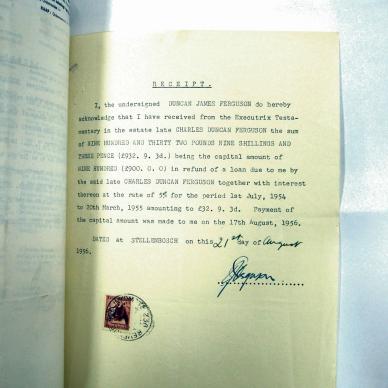 R E C E I P T.
I, the undersigned DUNCAN JAMES FERGUSON do hereby
acknowledge that I have received from the Executrix Testa-
mentary in the estate late CHARLES DUNCAN FERGUSON the sum
of NINE HUNDRED AND THIRTY TWO POUNDS NINE SHILLINGS AND
THREE PENCE (£932. 9. 3d.) being the capital amount of
NINE HUNDRED (£900. 0. 0) in refund of a loan due to me by
the said late CHARLES DUNCAN FERGUSON together with interest
thereon at the rate of 5% for the period 1st July, 1954
to 20th March, 1955 amounting to £32. 9. 3d. Payment of
the capital amount was made to me on the 17th August, 1956.
DATED at STELLENBOSCH on this 21st day of August
1956.